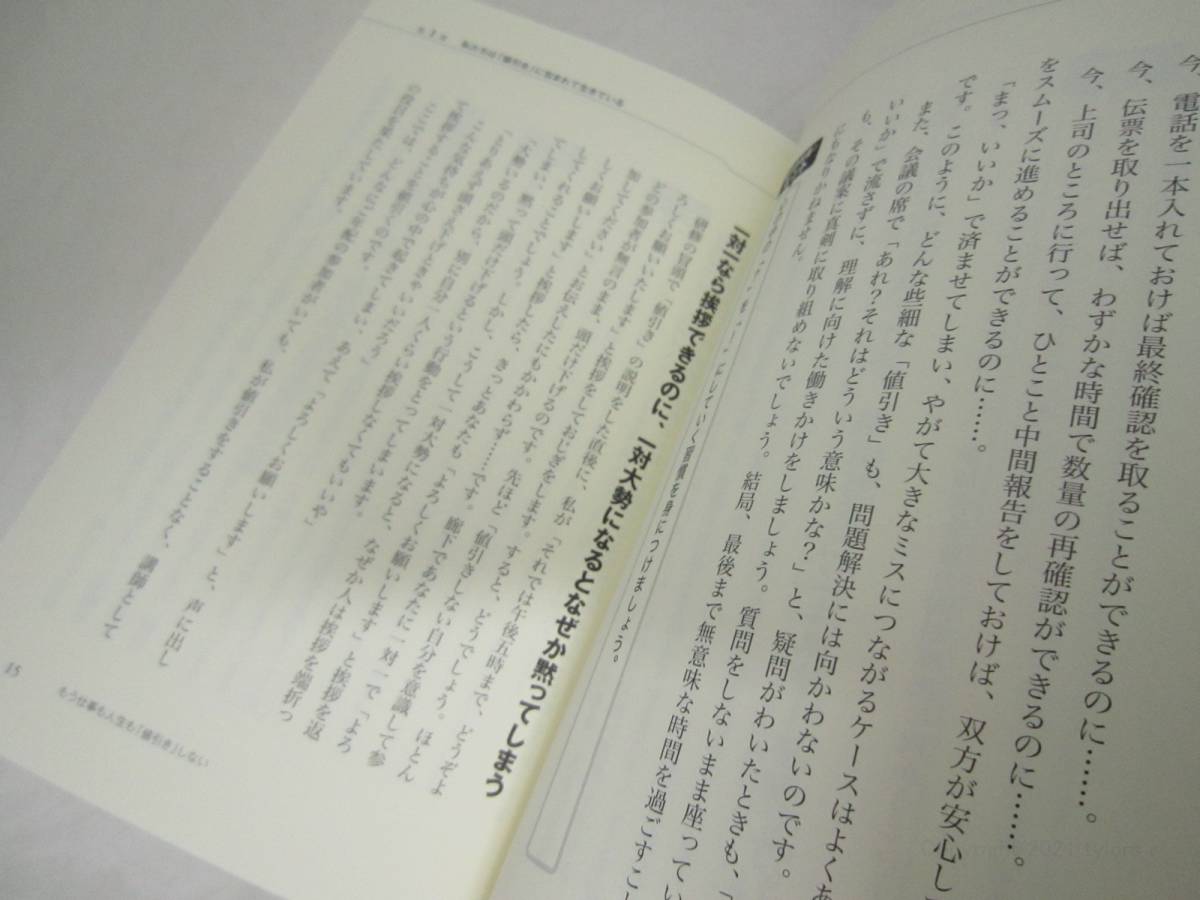 今、電話を一本入れておけば最終確認を取ることができるのに……。
今、伝票を取り出せば、わずかな時間で数量の再確認ができるのに……。
今、上司のところに行って、ひとこと中間報告をしておけば、双方が安心し
をスムーズに進めることができるのに……。
「まっ、いいか」で済ませてしまい、やがて大きなミスにつながるケースはよくあ
です。このように、どんな些細な「値引き」も、問題解決には向かわないのです。
また、会議の席で「あれ?それはどういう意味かな?」と、疑問がわいたときも、「
いいか」で流さずに、理解に向けた働きかけをしましょう。質問をしないまま座ってい
も、その議案に真剣に取り組めないでしょう。結局、最後まで無意味な時間を過ごすこ
にもなりかねません。
していく習慣を身につけましょう。
一対一なら挨拶できるのに、一対大勢になるとなぜか黙ってしまう
研修の冒頭で「値引き」の説明をした直後に、私が「それでは午後五時まで、どうぞよ
ろしくお願いいたします」と挨拶をしておじぎをします。すると、どうでしょう。ほとん
どの参加者が無言のまま、頭だけ下げるのです。先ほど「値引きしない自分を意識して参
加してください」とお伝えしたにもかかわらず……です。廊下であなたに一対一で「よろ
しくお願いします」と挨拶したら、きっとあなたも「よろしくお願いします」と挨拶を返
してくれることでしょう。しかし、こうして一対大勢になると、なぜか人は挨拶を端折っ
てしまい、黙って頭だけ下げるという行動をとってしまいます。
「大勢いるのだから、別に自分一人くらい挨拶しなくてもいいや」
「とりあえず頭さえ下げときゃいいだろう」
こんな気持ちが心の中で起きてしまい、あえて「よろしくお願いします」と、声に出し
て挨拶することを値引くのです。
ここでは、どんなに
の責任を果たしています。
15
もう仕事も人生も「値引き」しない